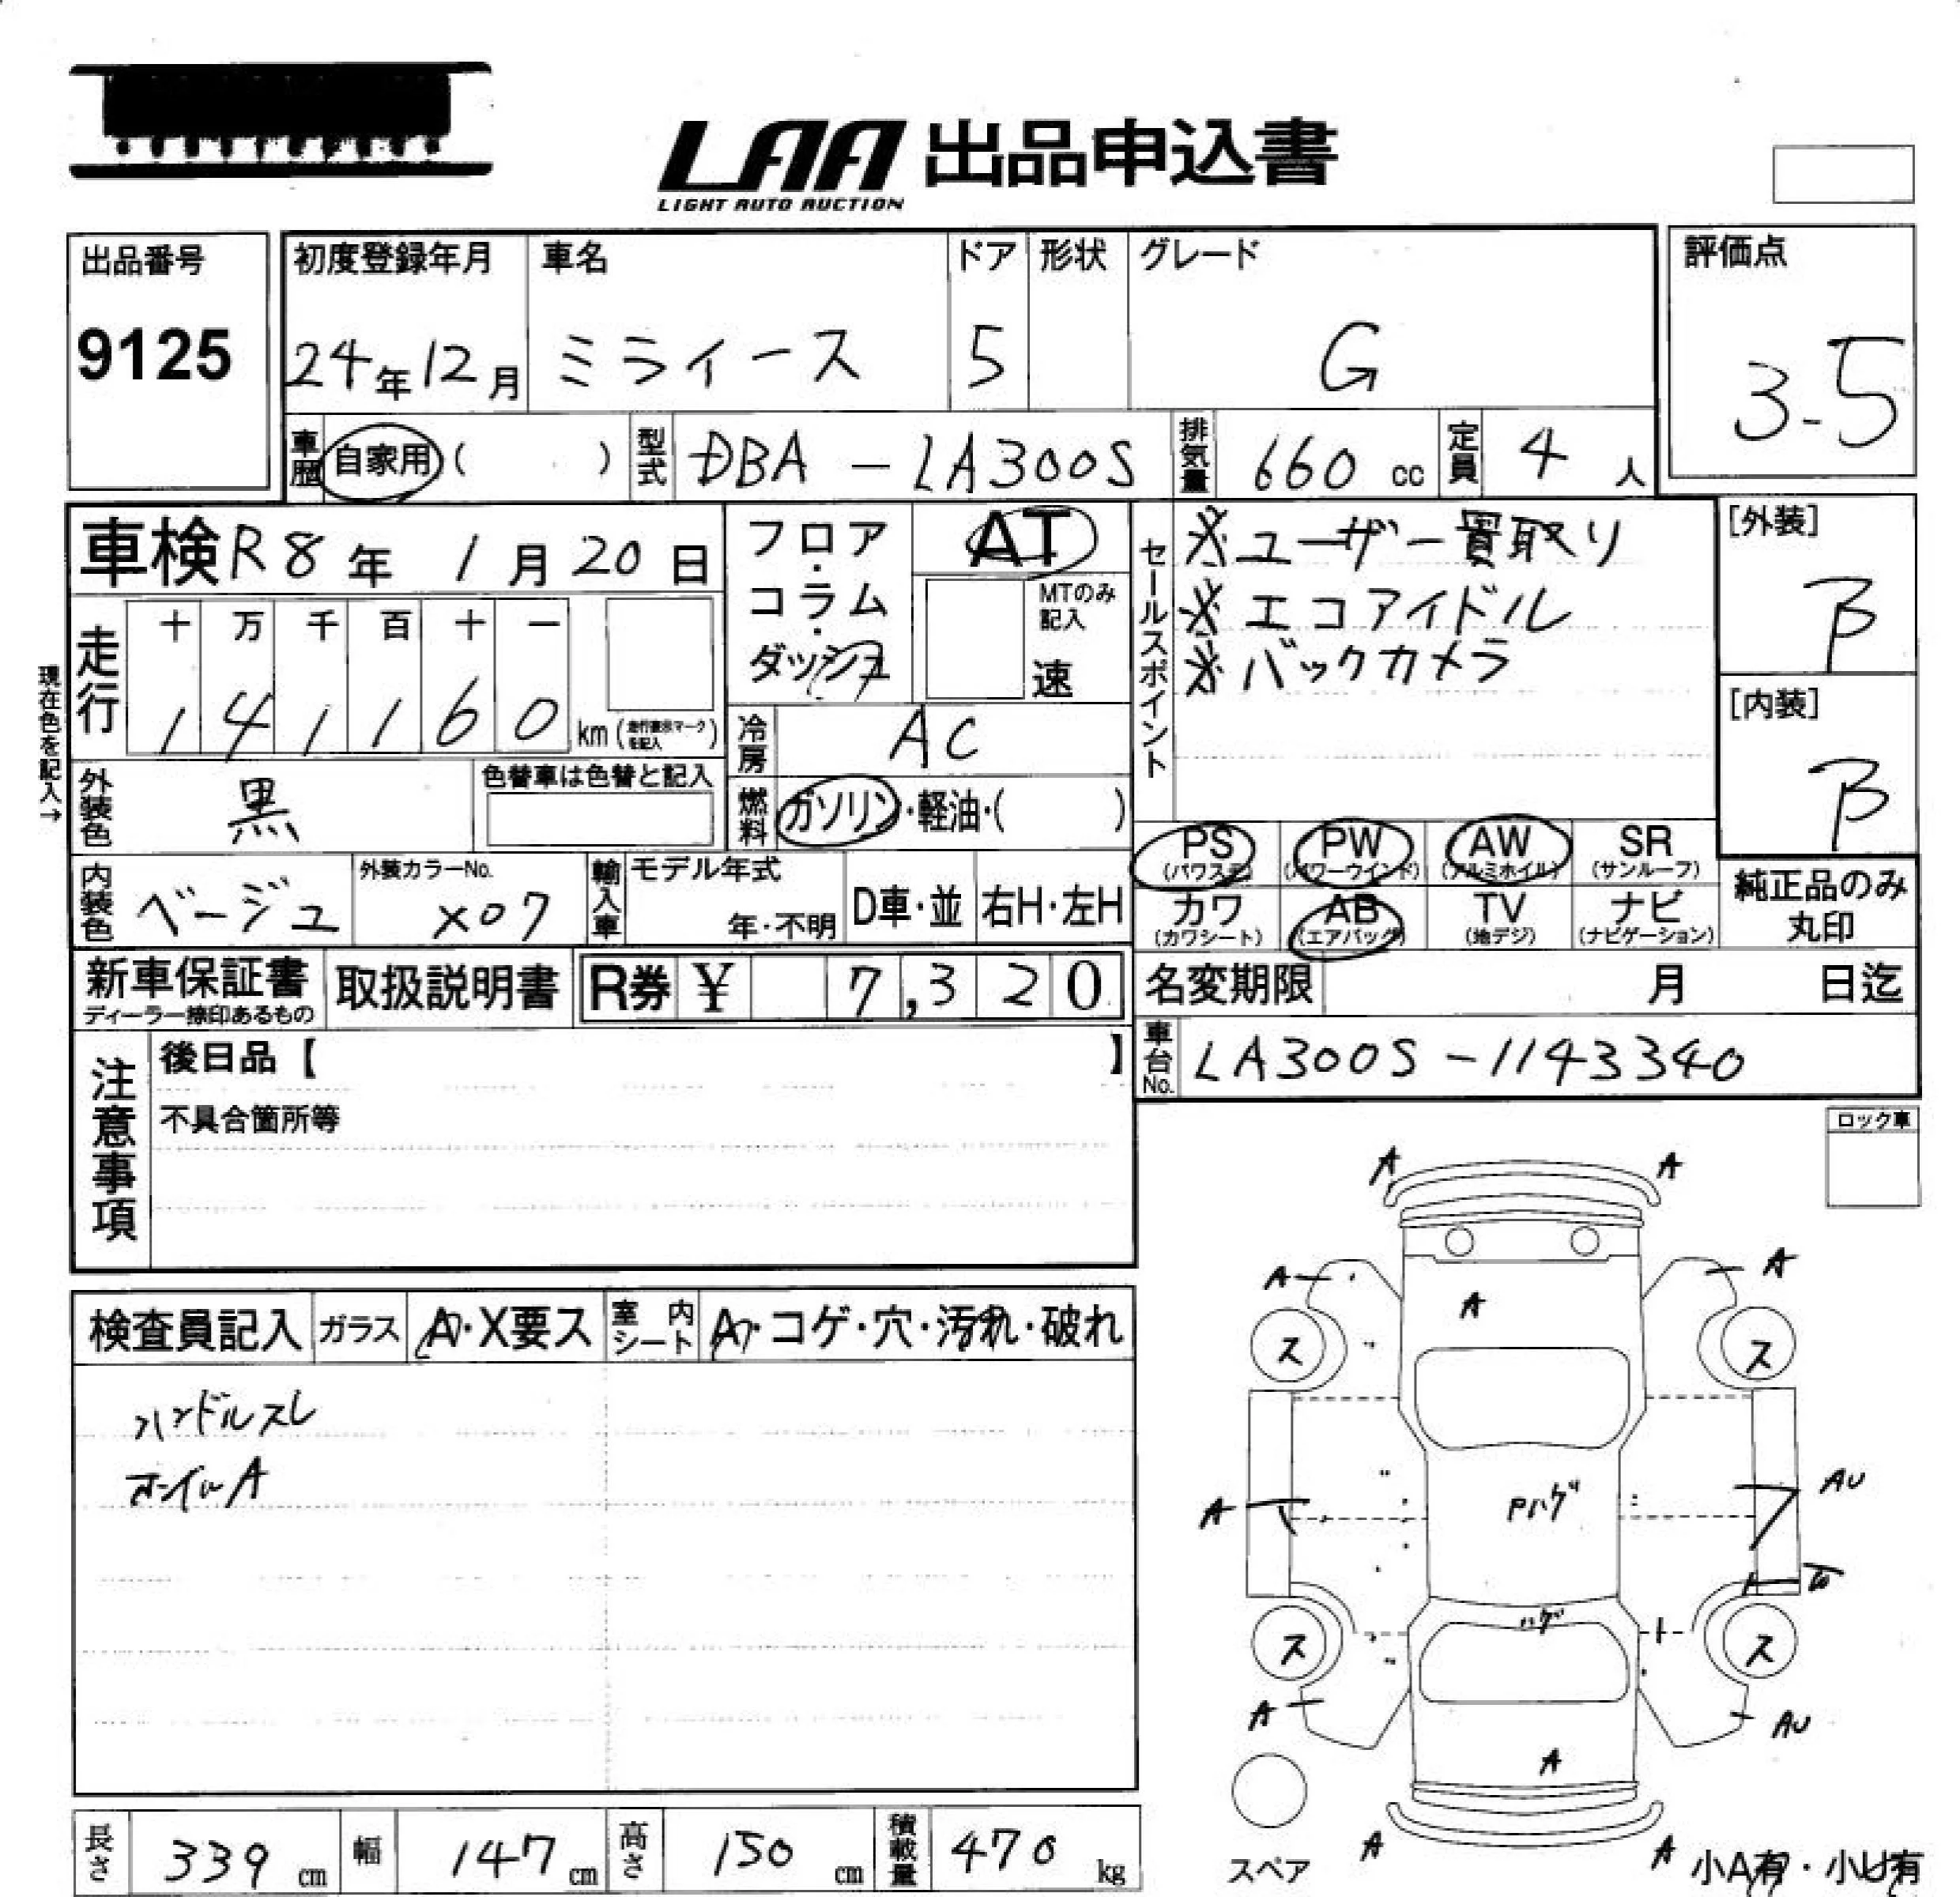 LAA 出品申込書
LIGHT AUTO AUCTION
出品番号 初度登録年月 車名 ドア 形状 グレード 評価点
9125 24年12月 ミライース 5 G 3-5
車歴 自家用 ( ) 型式 DBA - LA300S 排気量 660 cc 定員 4 人
車検 R8年 1月20日 フロア・コラム・ダッシュ AT セールスポイント ※ユーザー買取り [外装] B
MTのみ記入 速 ※エコアイドル
※バックカメラ
現在色を記入→
走行 十 万 千 百 十 一
1 4 1 1 6 0 km (走行表示マークを記入)
[内装] B
冷房 AC
外装色 黒 色替車は色替と記入 燃料 ガソリン・軽油・( )
PS (パワステ) PW (パワーウインド) AW (アルミホイル) SR (サンルーフ)
内装色 ベージュ 外装カラーNo. X07 輸入車 モデル年式 年・不明 D車・並 右H・左H
カワ (カワシート) AB (エアバッグ) TV (地デジ) ナビ (ナビゲーション) 純正品のみ丸印
新車保証書 取扱説明書 R券 ¥ 7,320 名変期限 月 日迄
ディーラー捺印あるもの
車台No. LA300S-1143340
注意事項 後日品【 】
不具合箇所等
ロック車
検査員記入 ガラス A・X要ス 室内シート A・コゲ・穴・汚れ・破れ
ハンドルスレ
ホイルA
A A
A A
A
ス ス
AU
A Pハゲ
ハゲ
ス ス
A AU
A
A A
スペア 小A有・小U有
長さ 339 cm 幅 147 cm 高さ 150 cm 積載量 470 kg